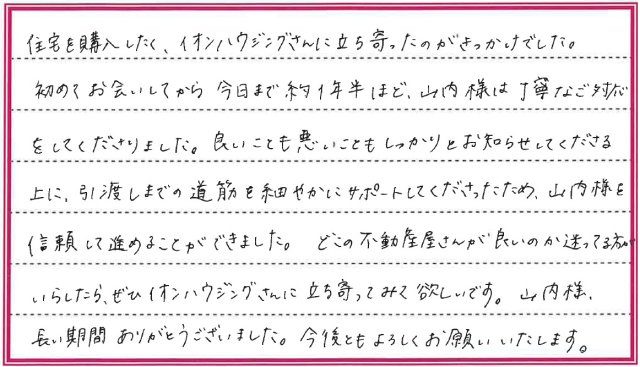 住宅を購入したく、イオンハウジングさんに立ち寄ったのがきっかけでした。
初めてお会いしてから今日まで約1年半ほど、山内様は丁寧なご対応
をしてくださりました。良いことも悪いこともしっかりとお知らせしてくださる
上に、引渡しまでの道筋を細やかにサポートしてくださったため、山内様を
信頼して進めることができました。 どこの不動産屋さんが良いのか迷ってる方が
いらしたら、ぜひイオンハウジングさんに立ち寄ってみて欲しいです。山内様、
長い期間ありがとうございました。今後ともよろしくお願いいたします。